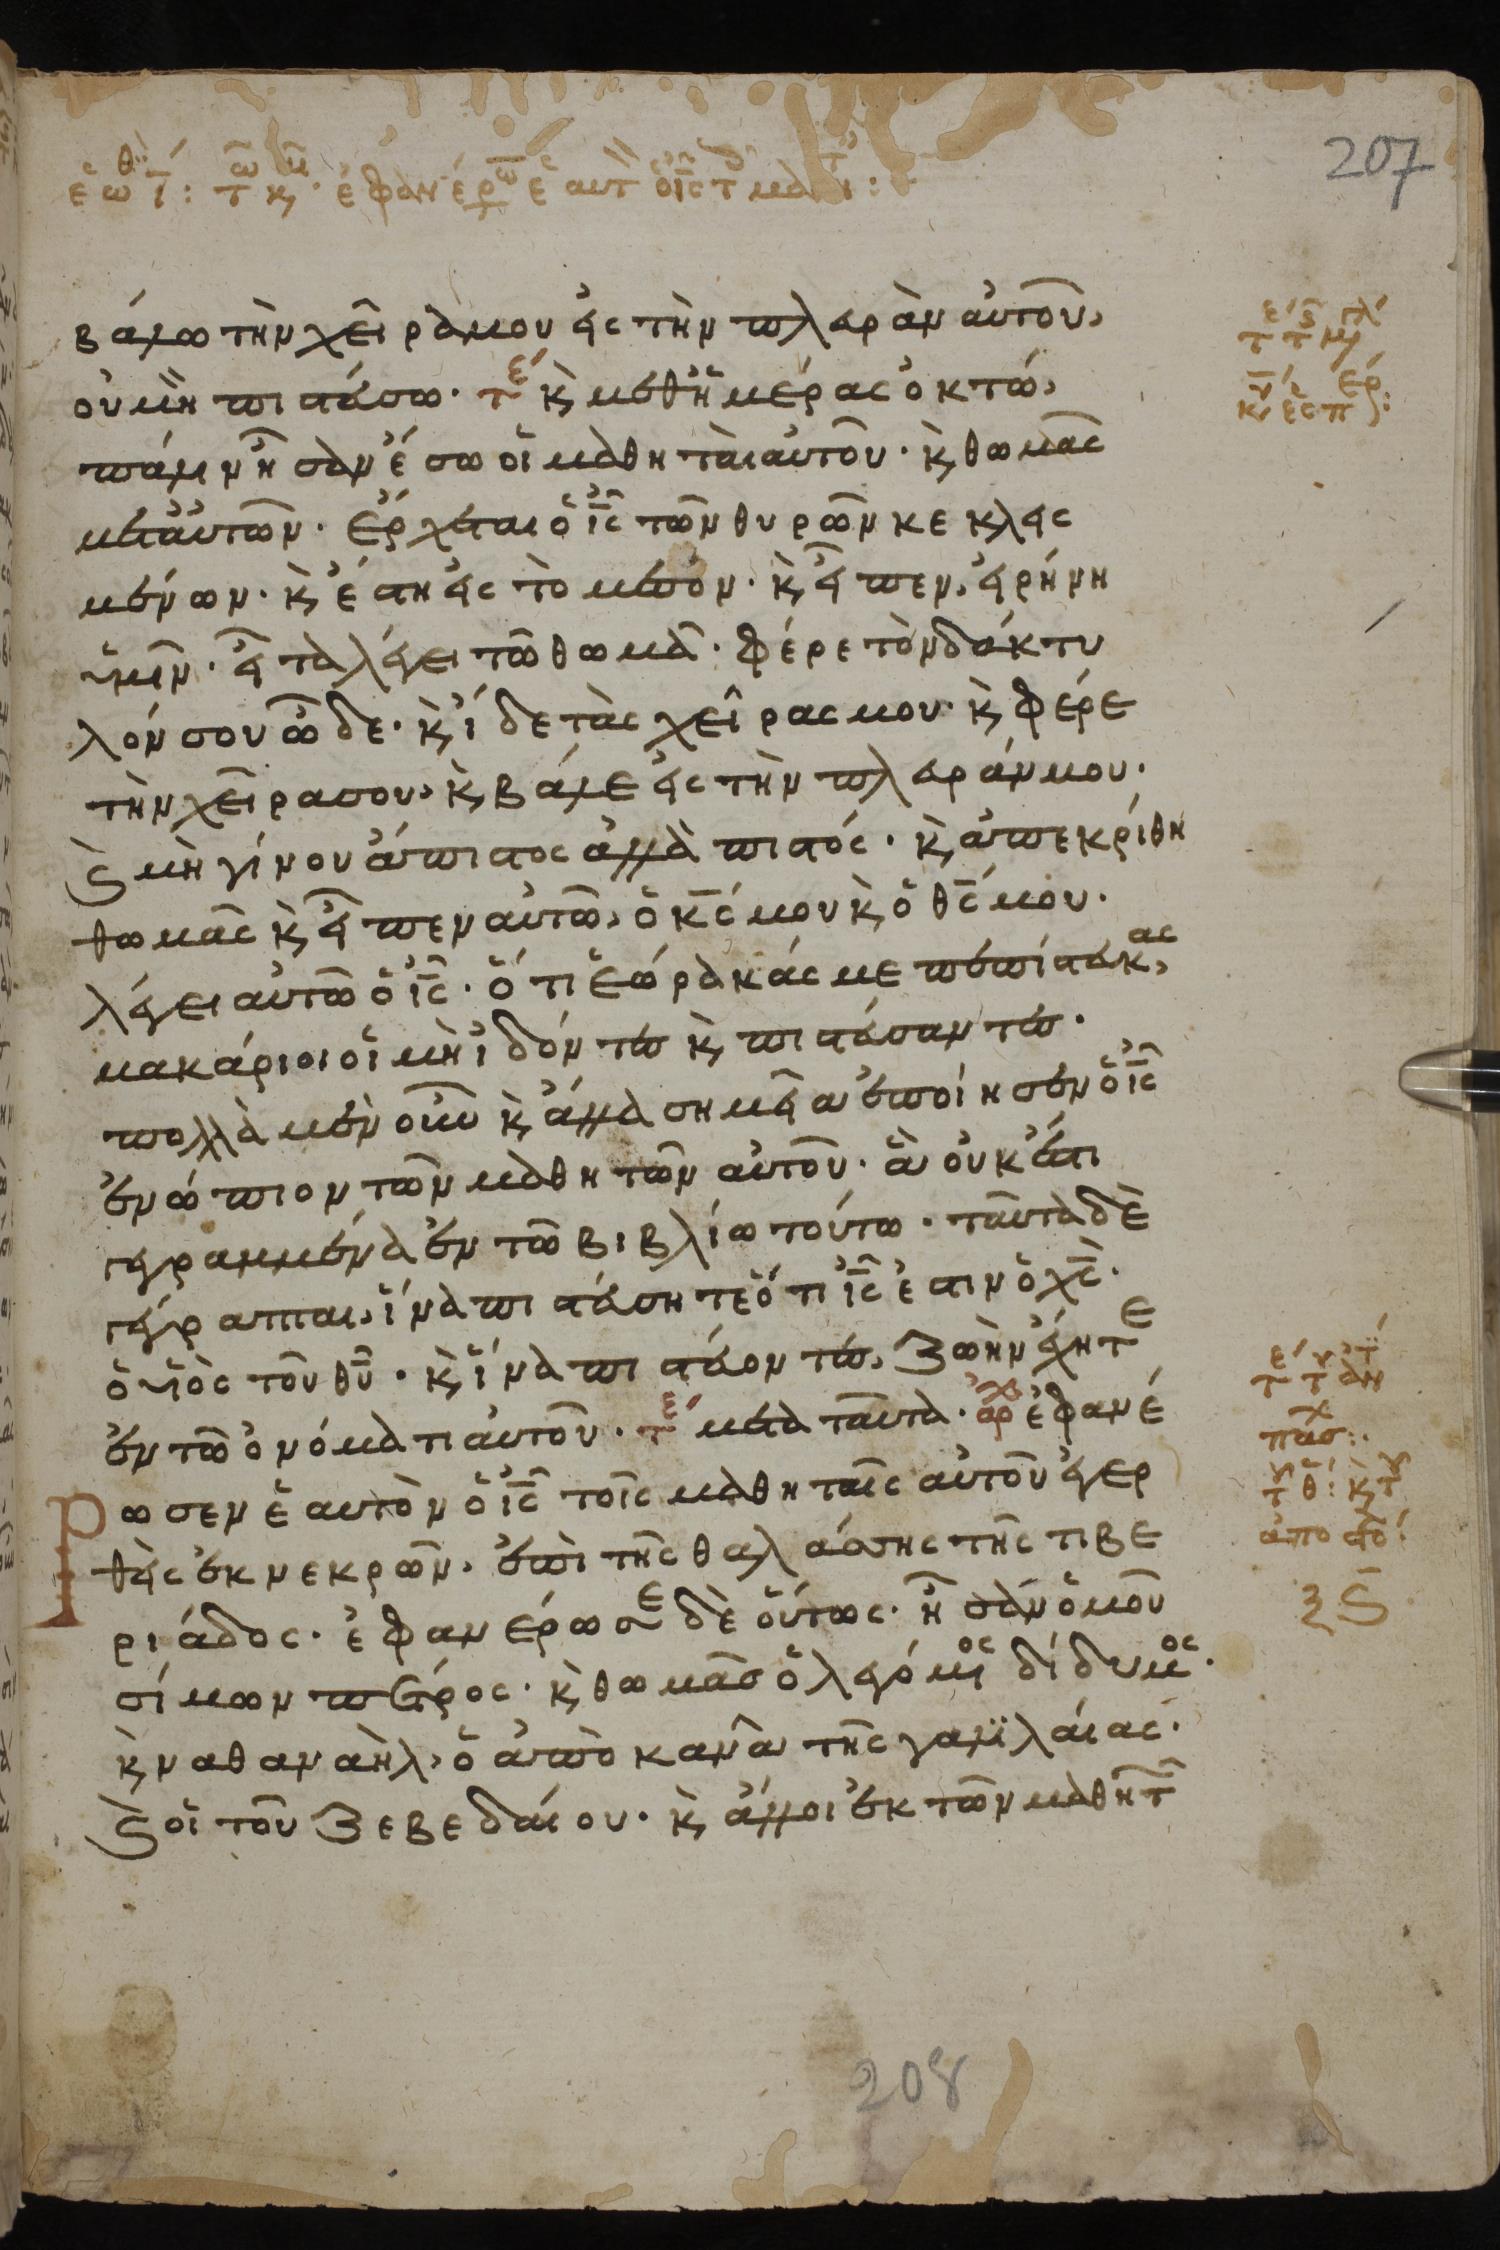 207
βάλω τὴν χεῖρά μου εἰς τὴν πλευρὰν αὐτοῦ,
οὐ μὴ πιστεύσω. τε κ μεθ ἡμέρας ὀκτώ,
πάλιν ἦσαν ἔσω οἱ μαθηταὶ αὐτοῦ. κ θωμᾶς
μετ αὐτῶν. ἔρχεται ὁ ις τῶν θυρῶν κεκλεισ
μένων. κ ἔστη εἰς τὸ μέσον. κ εἶπεν, εἰρήνη
ὑμῖν. εἶτα λέγει τῶ θωμᾶ. φέρε τὸν δάκτυ
λόν σου ὧδε. κ ἴδε τὰς χεῖρας μου. κ φέρε
τὴν χεῖρα σου, κ βάλε εἰς τὴν πλευράν μου.
κ μὴ γίνου ἄπιστος ἀλλὰ πιστός. κ ἀπεκρίθη
θωμᾶς κ εἶπεν αὐτῶ, ὁ κς μου κ ὁ θς μου.
λέγει αὐτῶ ὁ ις. ὅτι ἑώρακάς με πεπίστευκας,
μακάριοι οἱ μὴ ἰδόντες κ πιστεύσαντες.
πολλὰ μὲν οὖν κ ἄλλα σημεῖα ἐποίησεν ὁ ις
ἐνώπιον τῶν μαθητῶν αὐτοῦ. ἃ οὐκ ἔστι
γεγραμμένα ἐν τῶ βιβλίω τούτω. ταῦτα δὲ
γέγραπται, ἵνα πιστεύσητε ὅτι ις ἐστιν ὁ χς.
ὁ υἱὸς τοῦ θυ. κ ἵνα πιστεύοντες, ζωὴν ἔχητε
ἐν τῶ ὀνόματι αὐτοῦ. τε μετὰ ταῦτα. αρχ ἐφανέ
ρωσεν ἑαυτὸν ὁ ις τοῖς μαθηταῖς αὐτοῦ ἐγερ
θεὶς ἐκ νεκρῶν. ἐπὶ τῆς θαλάσσης τῆς τιβε
ριάδος. ἐφανέρωσε δὲ οὕτως. ἦσαν ὁμοῦ
σίμων πέτρος. κ θωμᾶσ ὁ λεγόμενος δίδυμος.
κ ναθαναὴλ, ὁ ἀπὸ κανᾶ τῆς γαλιλαίας.
κ οἱ τοῦ ζεβεδαίου. κ ἄλλοι ἐκ τῶν μαθητ
208